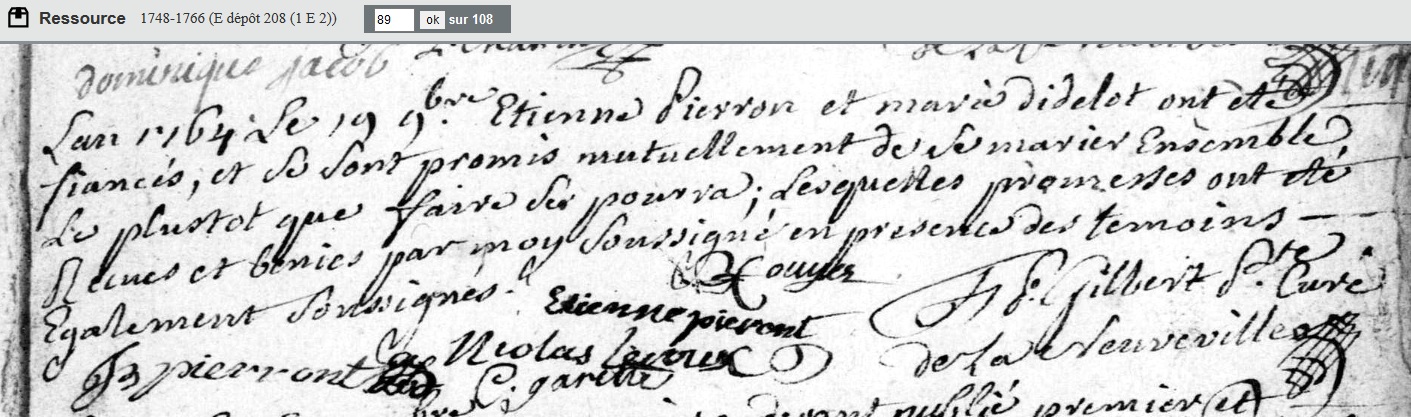 Ressource 1748-1766 (E dépôt 208 (1 E 2)) 89 ok sur 108
dominique jacob
Lan 1764 Le 19 9.bre Etienne Pierron et marie didelot ont eté
fiancés, et se sont promis mutuellement de se marier Ensemble,
Le plustot que faire se pourra; Lesquelles promesses ont eté
Recues et benies par moy soussigné en presence des temoins
Egalement soussignés.
Etienne pieront
f. Gilbert p.tre Curé
pierront Nicolas
de la Neuveville
C. garille
devant publié premier et